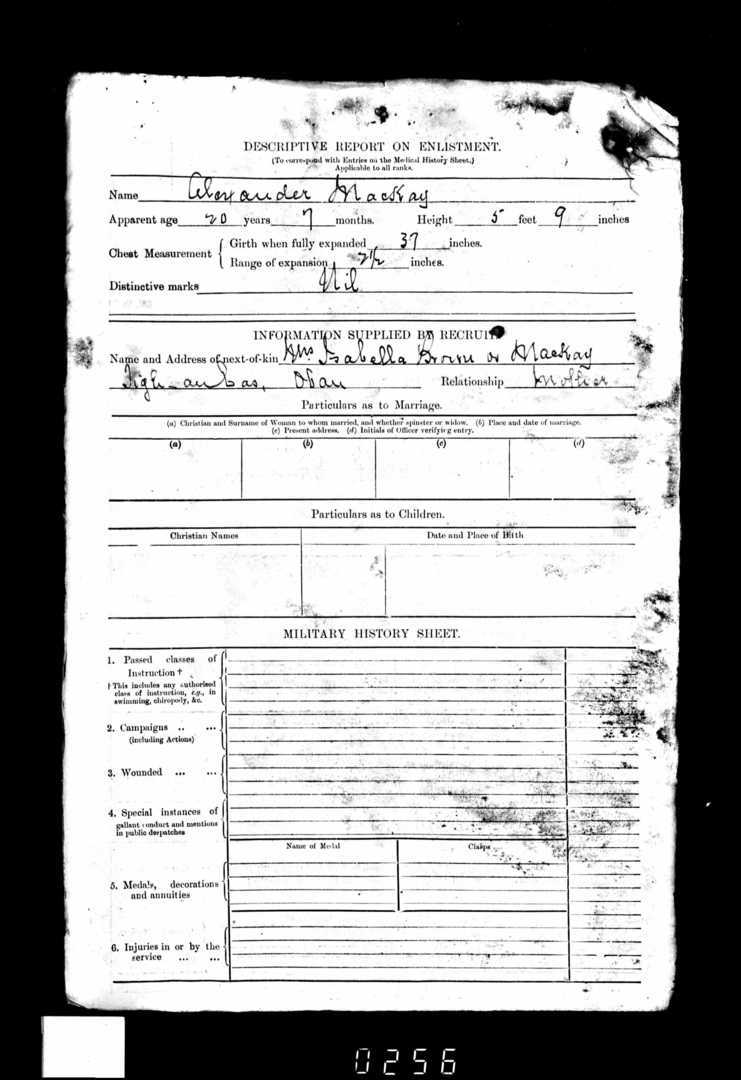 DESCRIPTIVE REPORT ON ENLISTMENT.
(To correspond with Entries on the Medical History Sheet.)
Applicable to all ranks.
Name Alexander MacKay
Apparent age 20 years 7 months. Height 5 feet 9 inches
Chest Measurement { Girth when fully expanded 37 inches.
Range of expansion 2½ inches.
Distinctive marks Nil
INFORMATION SUPPLIED BY RECRUIT
Name and Address of next-of-kin Mrs Isabella Brown or MacKay
Tigh-an-bas, Oban Relationship Mother
Particulars as to Marriage.
(a) Christian and Surname of Woman to whom married, and whether spinster or widow. (b) Place and date of marriage.
(c) Present address. (d) Initials of Officer verifying entry.
(a) (b) (c) (d)
Particulars as to Children.
Christian Names Date and Place of Birth
MILITARY HISTORY SHEET.
1. Passed classes of
Instruction †
† This includes any authorised
class of instruction, e.g., in
swimming, chiropody, &c.
2. Campaigns .. ...
(including Actions)
3. Wounded ... ...
4. Special instances of
gallant conduct and mentions
in public despatches
Name of Medal Clasps
5. Medals, decorations
and annuities
6. Injuries in or by the
service ... ...
0256